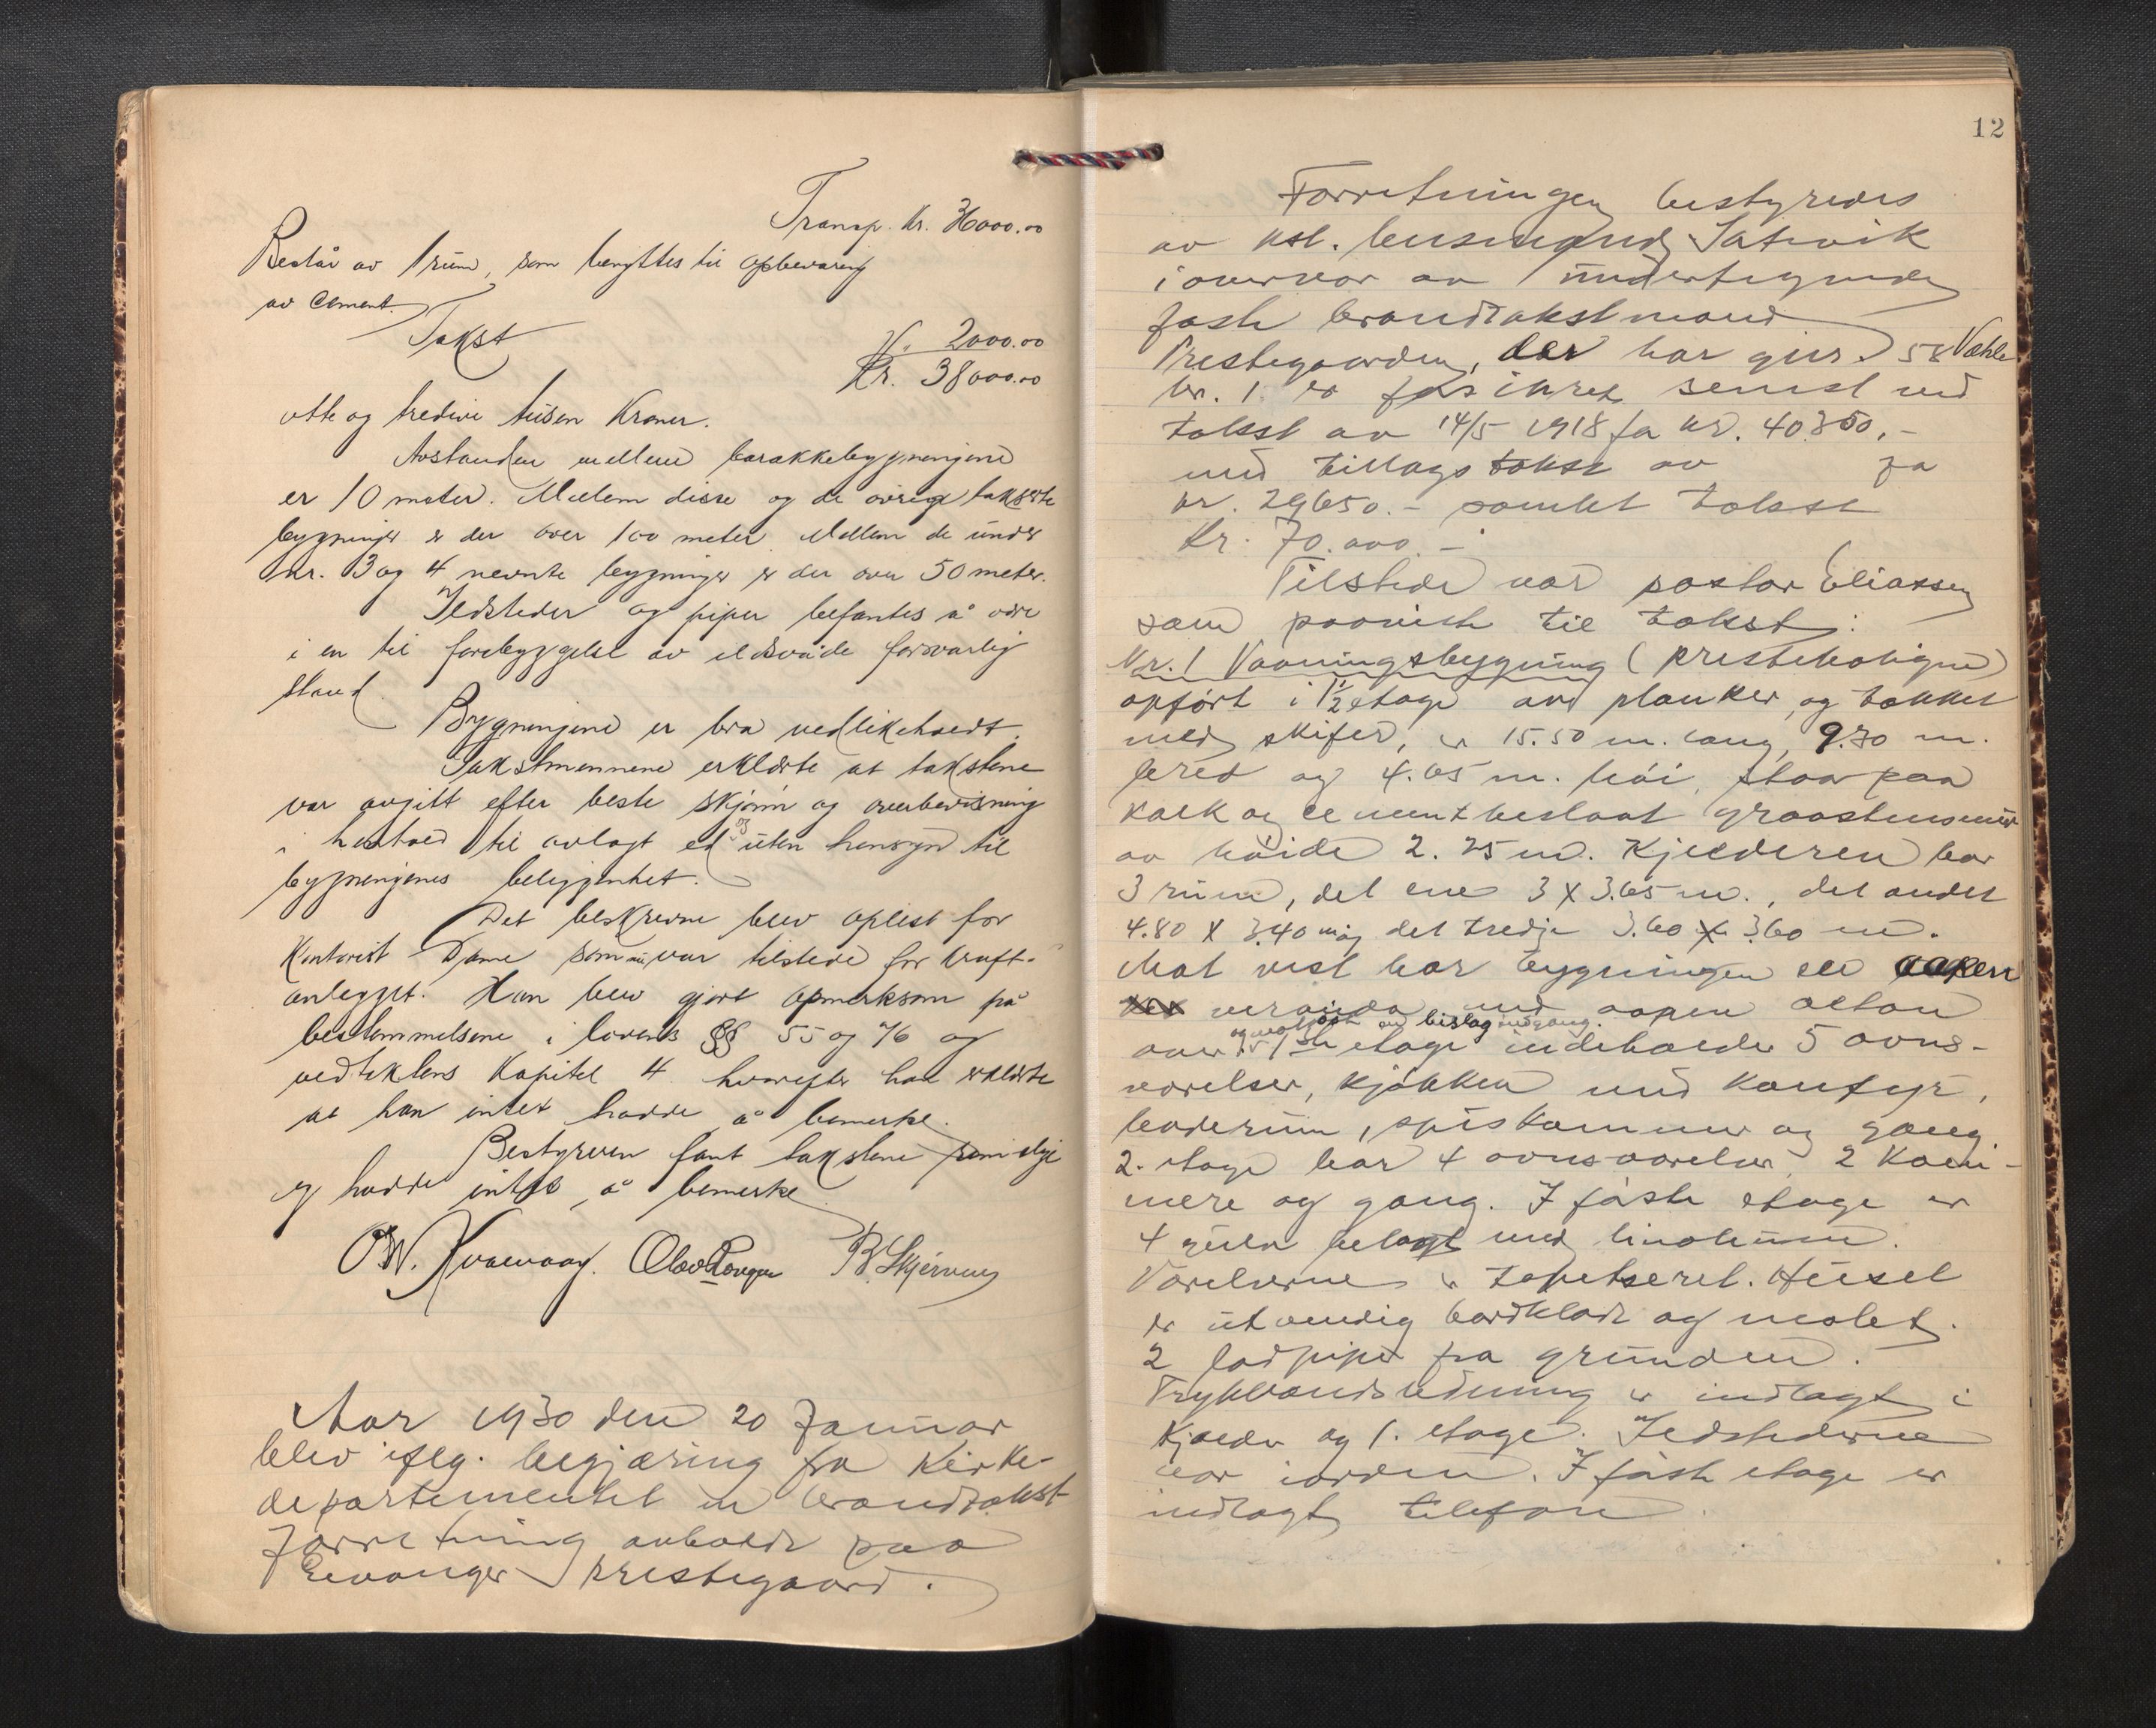 Transp. Kr. 36000.00
Består av 1 rum, som benyttes til opbevaring
av Cement.
Takst
" 2000.00
Kr. 38000.00
otte og tredive tusen Kroner.
Avstanden mellem barakkebygningene
er 10 meter. Mellem disse og de øvrige takserte
bygninger er der over 100 meter. Mellem de under
nr. 3 og 4 nevnte bygninger er der over 50 meter.
Ildsteder og piper befantes å være
i en til forebyggelse av ildsvåde forsvarlig
stand.
Bygningene er bra vedlikeholdt.
Takstmennene erklærte at takstene
var avgitt efter beste skjønn og overbevisning
i henhold til avlagt ed og uten hensyn til
bygningenes beliggenhet.
Det beskrevne blev oplest for
Kontorist som nu var tilstede for kraft-
anlegget. Han blev gjort opmerksom på
bestemmelsene i lovens §§ 55 og 76 og
vedtektens Kapitel 4 hvorefter han erklærte
at han intet hadde å bemerke.
Bestyreren fant takstene rimelige
og hadde intet å bemerke.
O.W. Kvaevaag. Olav B. Skjerveng
Aar 1930 den 20 Januar
blev iflg. begjæring fra Kirke-
departementet en brandtakst-
forretning avholdt paa
Evanger prestegaard.
12
Forretningen bestyredes
av kst. lensmand Sætevik
i overvær av undertegnede
faste brandtakstmænd
Prestegaarden, der har gnr. 58
br. 1. er forsikret senest ved
takst av 14/5 1918 for kr. 40350,-
med tillægstakst av fra
kr. 29650.- samlet takst
Kr. 70.000.-
Tilstede var pastor Eliassen
som paaviste til takst:
Nr. 1 Vaaningsbygning (presteboligen)
opført i 1 1/2 etage av planker, og tækket
med skifer, er 15.50 m. lang, 9.30 m.
bred og 4.65 m. høi, staar paa
kalk og cementbeslaat graastensmur
av høide 2.25 m. Kjelderen har
3 rum, det ene 3 x 3.65 m., det andet
4.80 x 3.40 m og det tredje 3.60 x 3.60 m.
Mot vest har bygningen en aapen
veranda med aapen altan
over og mot øst en bislag indgang.
1ste etage indeholder 5 ovns-
værelser, kjøkken med komfyr,
baderum, spiskammer og gang.
2. etage har 4 ovnsværelser, 2 kam-
mere og gang. I første etage er
4 gulv belagt med linoleum.
Værelserne er tapetseret. Huset
er utvendig bordklædt og malet.
2 lodpiper fra grunden.
Trykvandsledning er indlagt i
Kjælder og 1. etage. Ildstederne
var iorden. I første etage er
indlagt telefon.